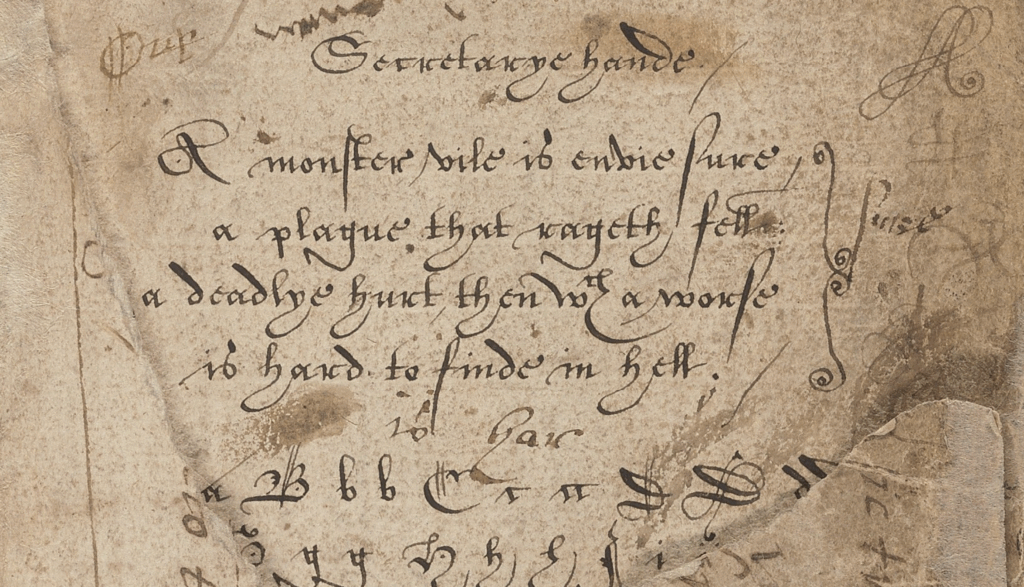 Secretarye hande.
A monster vile is envie sure,
a plague that rageth fell:
sure
a deadlye hurt, then wch a worse
is hard to finde in hell.
is har
a B b b C c a
g g h h i